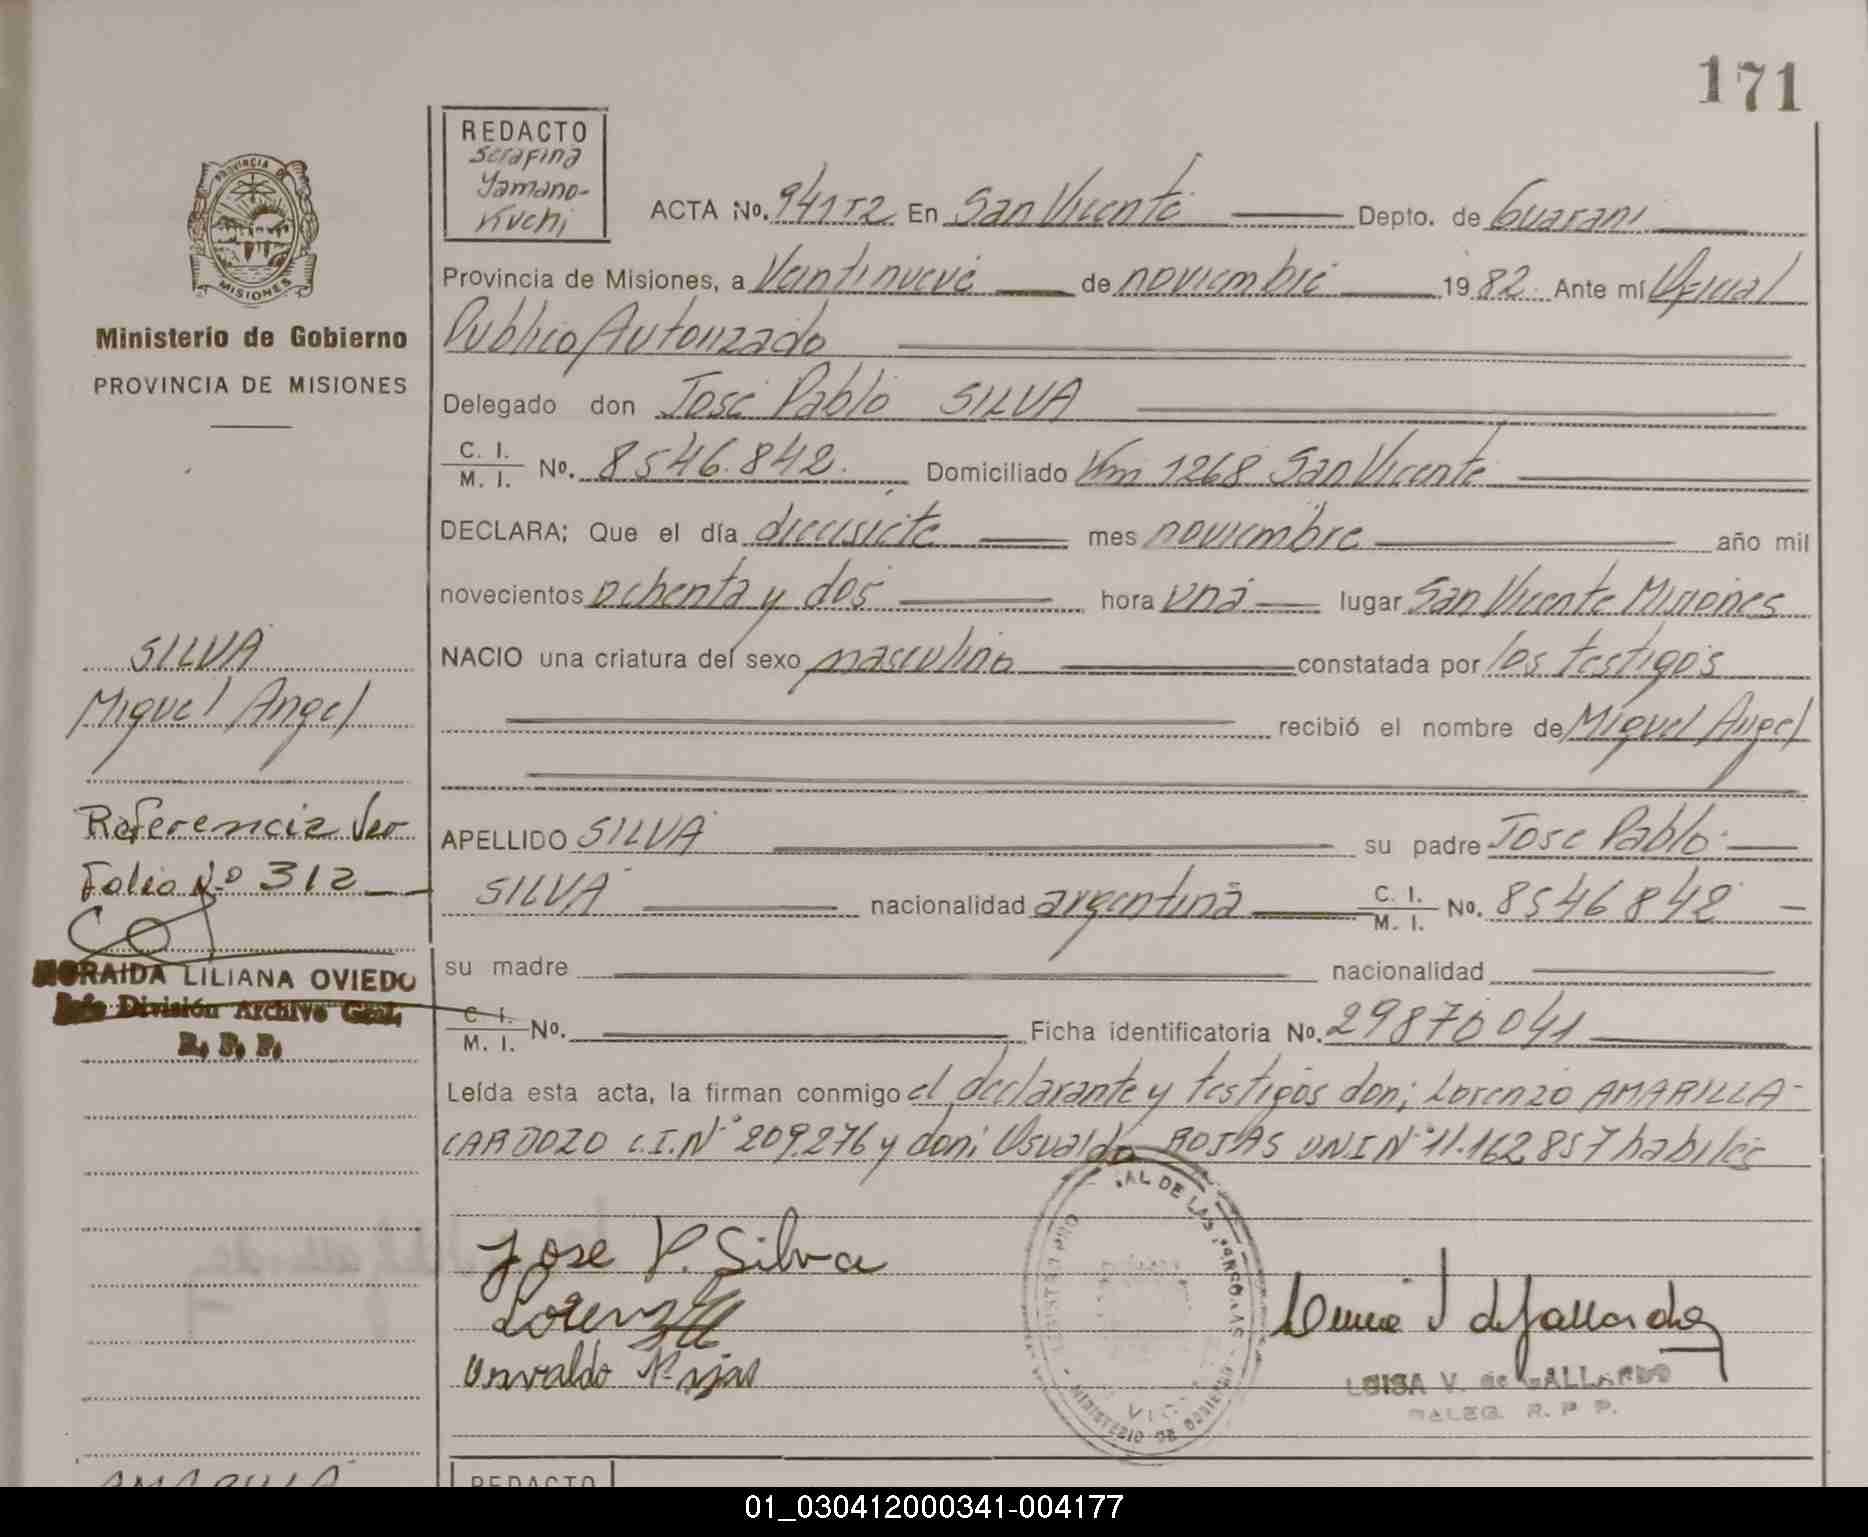 171
REDACTO
Serafina
Yamano-
Kuchi
PROVINCIA DE
MISIONES
Ministerio de Gobierno
PROVINCIA DE MISIONES
ACTA No. 941T2 En San Vicente Depto. de Guarani
Provincia de Misiones, a Veintinueve de noviembre 1982. Ante mí Oficial
Publico Autorizado
Delegado don Jose Pablo SILVA
C. I.
M. I. No. 8546.842. Domiciliado Km 1268 San Vicente
DECLARA; Que el día diecisiete mes noviembre año mil
novecientos ochenta y dos hora una lugar San Vicente Misiones
NACIO una criatura del sexo masculino constatada por los testigos
recibió el nombre de Miguel Angel
SILVA
Miguel Angel
Referencia Ver
Folio Nº 312
NORAIDA LILIANA OVIEDO
Jefe División Archivo Gral.
R. P. P.
APELLIDO SILVA su padre Jose Pablo
SILVA nacionalidad argentina C. I.
M. I. No. 8546842
su madre nacionalidad
C. I.
M. I. No. Ficha identificatoria No. 29870041
Leída esta acta, la firman conmigo el declarante y testigos don; Lorenzo AMARILLA-
CARDOZO C.I.Nº 209.276 y don; Osvaldo ROJAS DNI Nº 11.162857 habiles
Jose P. Silva
Lorenzo
Osvaldo Rojas
AL DE LAS PERSONAS
MINISTERIO DE GOBIERNO
LUISA V. de GALLARDO
DELEG. R. P. P.
AMARILLA
REDACTO
01_030412000341-004177